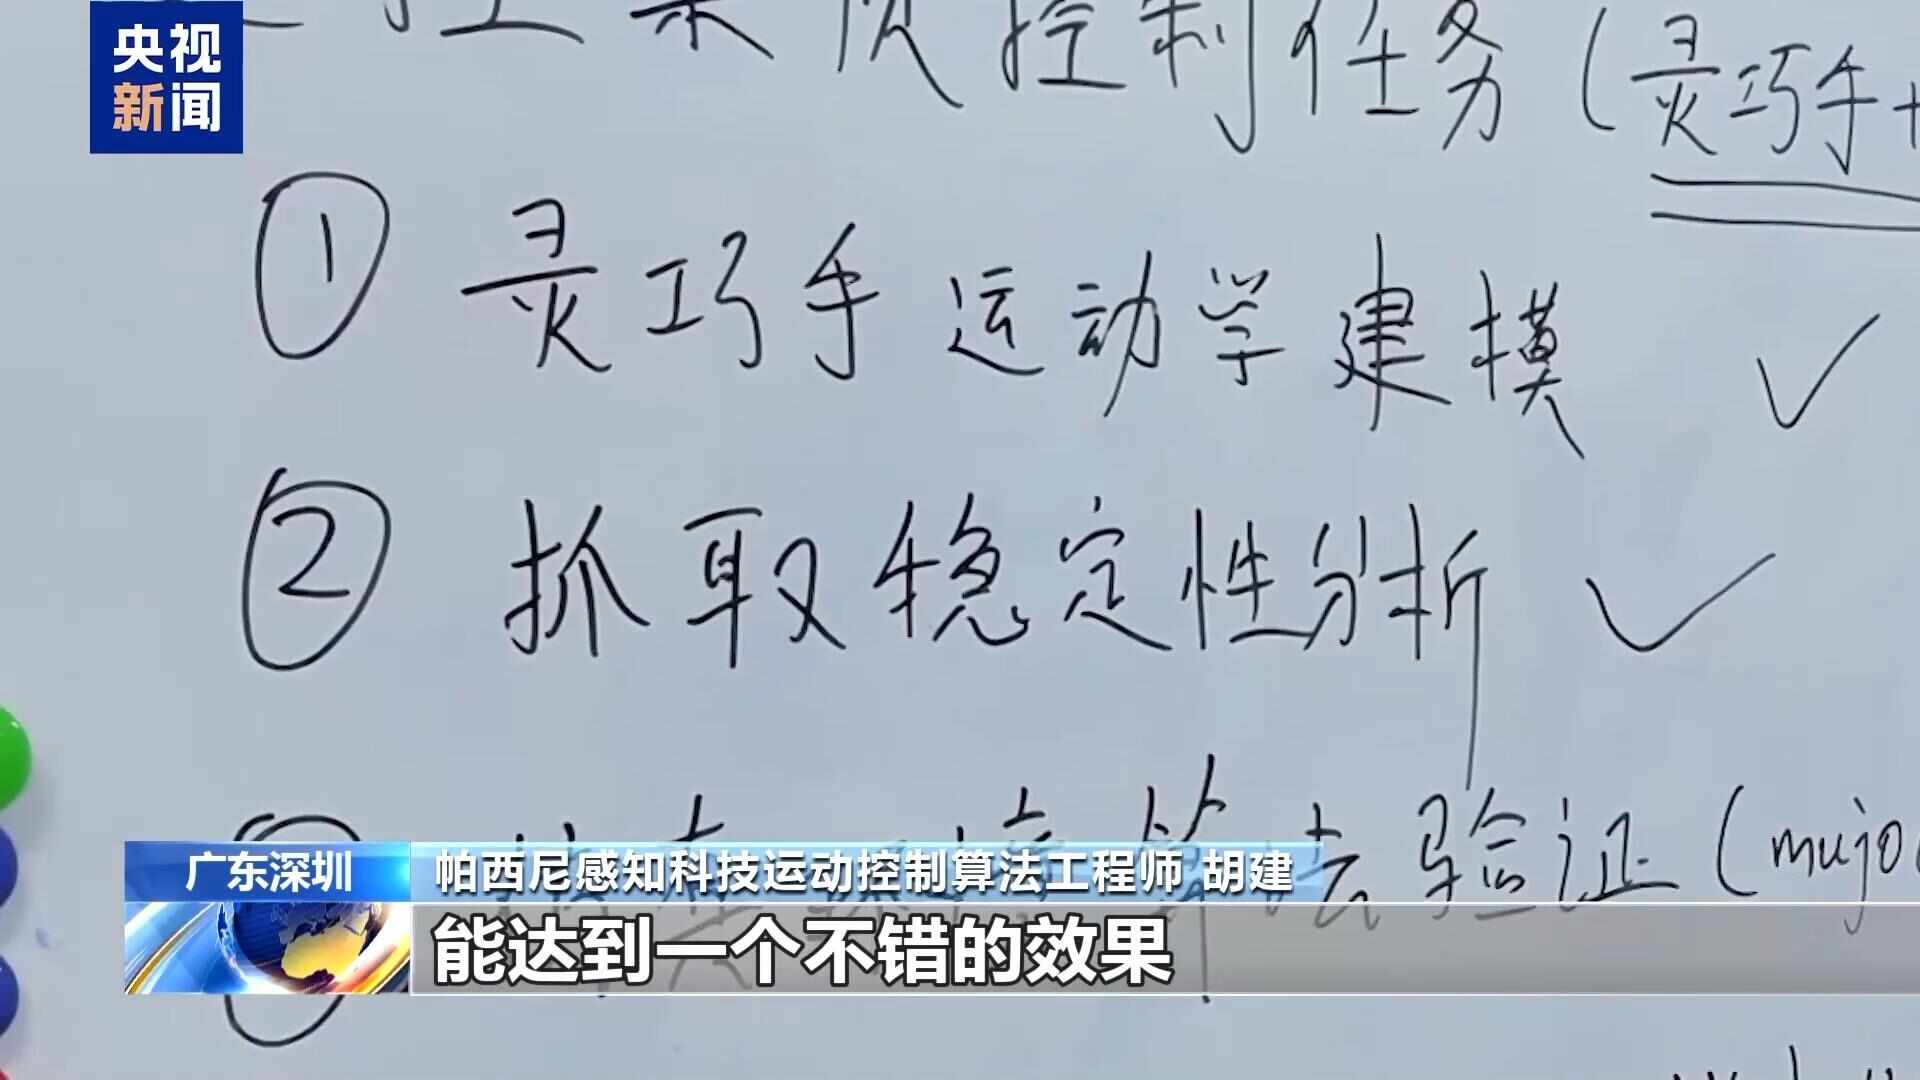 央视
新闻
控制任务（灵巧手+
① 灵巧手运动学建模 ✓
② 抓取稳定性分析 ✓
算法验证（mujo
广东深圳
帕西尼感知科技运动控制算法工程师 胡建
能达到一个不错的效果